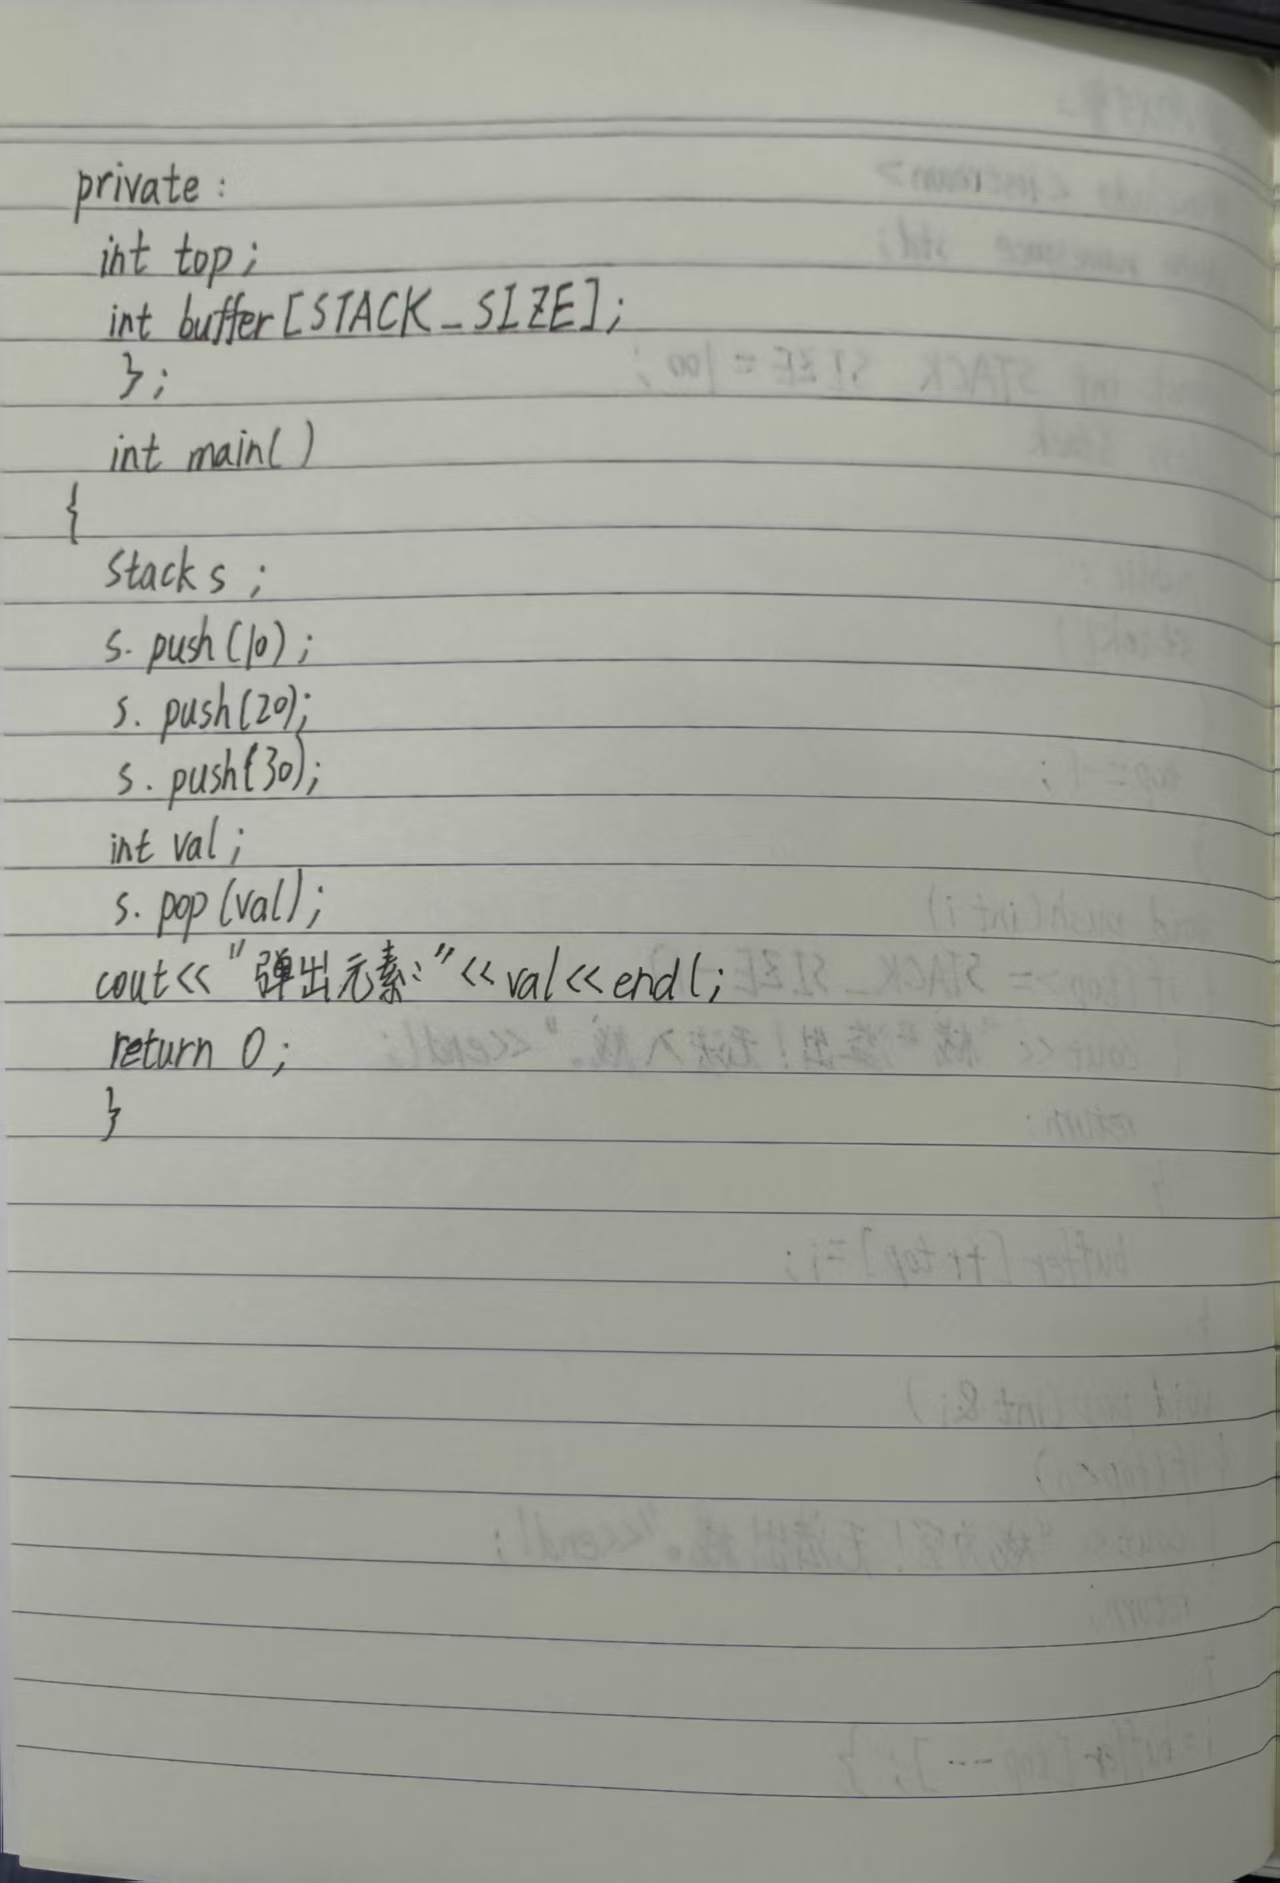 private:
int top;
int buffer[STACK_SIZE];
};
int main()
{
Stack s;
s.push(10);
s.push(20);
s.push(30);
int val;
s.pop(val);
cout<<"弹出元素:"<<val<<endl;
return 0;
}